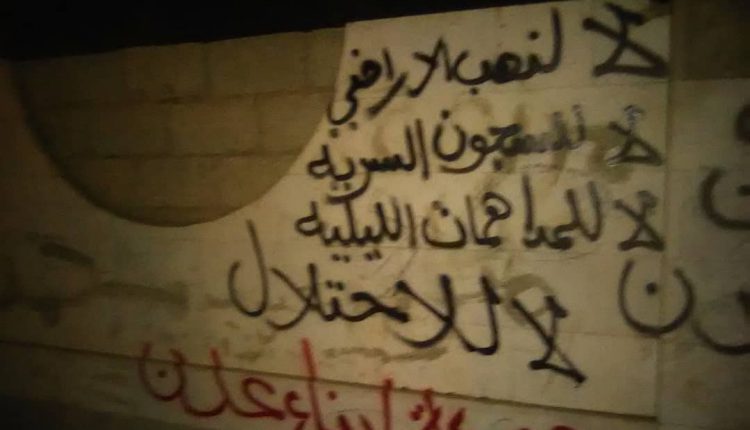 لا لنهب الاراضي
لا للسجون السرية
لا للمداهمات الليلية
لا للاحتلال
ابناء عدن